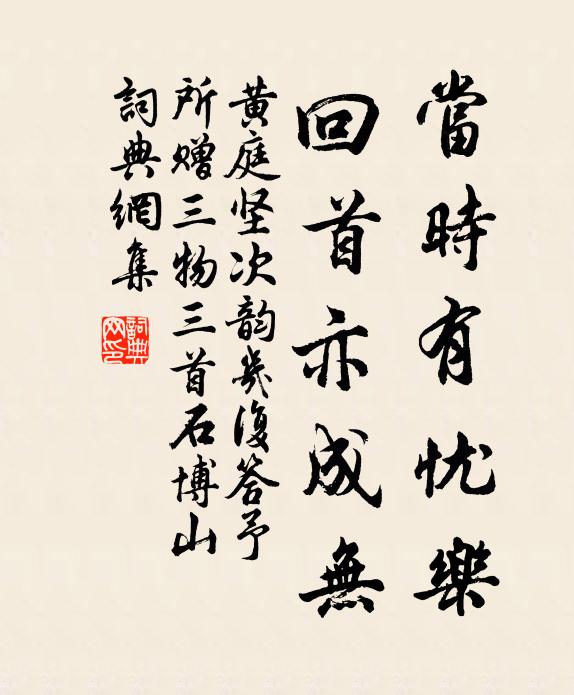 當時有忧樂
回首亦成無
黄庭坚次韵幾復答予
所赠三物三首石博山
詞典網集
詞典网印